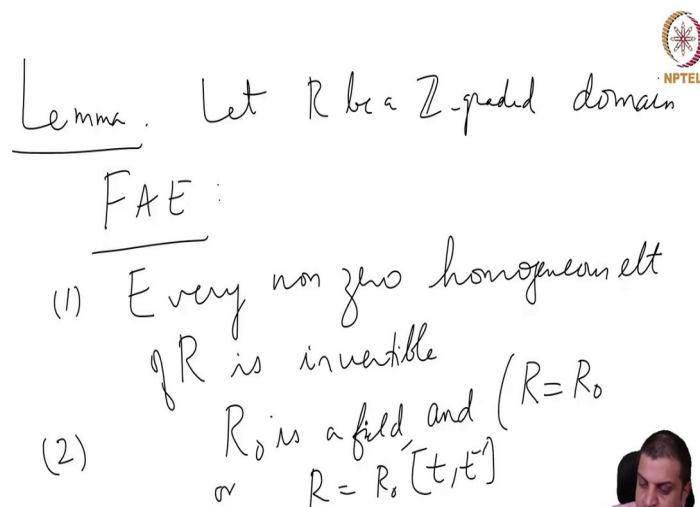 NPTEL
Lemma. Let R be a ℤ-graded domain
FAE:
(1) Every non zero homogeneous elt
of R is invertible
(2) R₀ is a field, and (R = R₀
or R = R₀[t, t⁻¹]